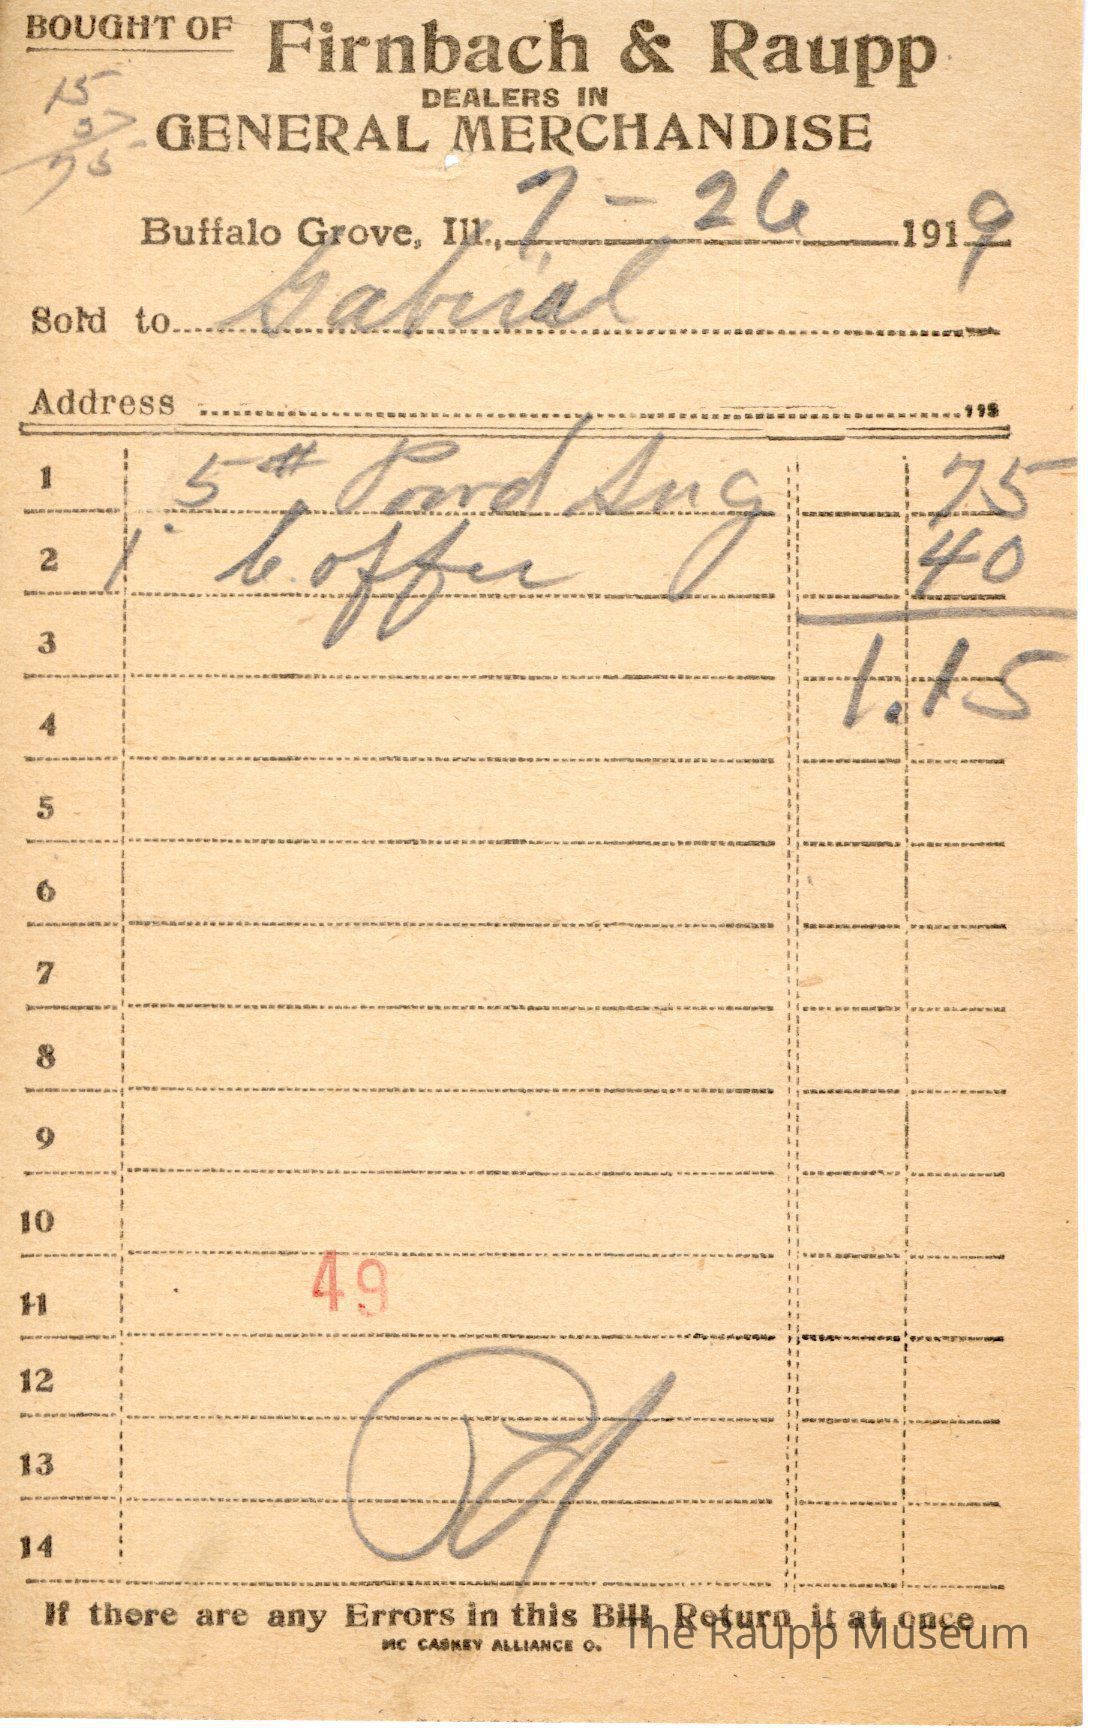 BOUGHT OF Firnbach & Raupp
DEALERS IN
15
5
75
GENERAL MERCHANDISE
Buffalo Grove, Ill., 7 - 26 1919
Sold to Gabriel
Address
1 5# Powd Sug 75
2 1 Coffee 40
3 1.15
4
5
6
7
8
9
10
49
11
12
Pd
13
14
If there are any Errors in this Bill Return it at once
MC CASKEY ALLIANCE O.
The Raupp Museum